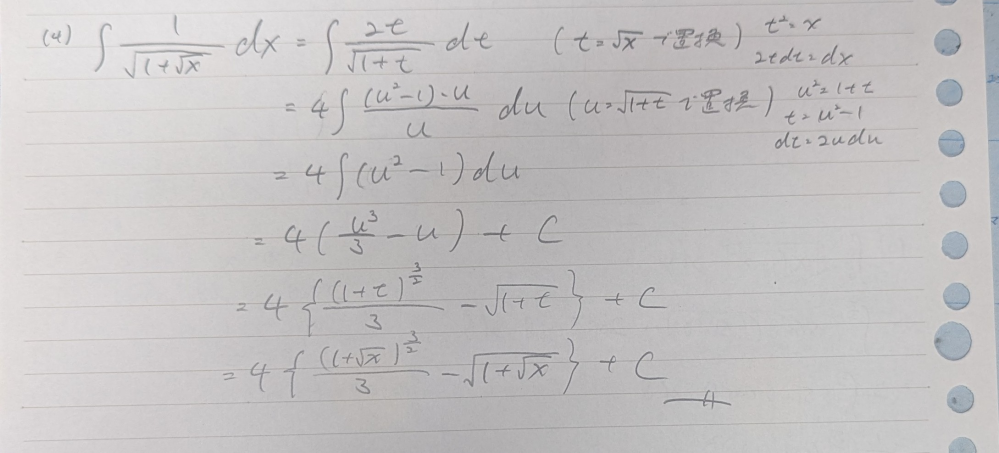 (4) ∫ 1/√(1+√x) dx = ∫ 2t/√(1+t) dt (t=√xで置換) t²=x
2tdt=dx
= 4∫ (u²-1)·u/u du (u=√(1+t)で置換) u²=1+t
t=u²-1
dt=2udu
= 4∫(u²-1)du
= 4(u³/3 - u) + C
= 4{(1+t)^(3/2)/3 - √(1+t)} + C
= 4{(1+√x)^(3/2)/3 - √(1+√x)} + C